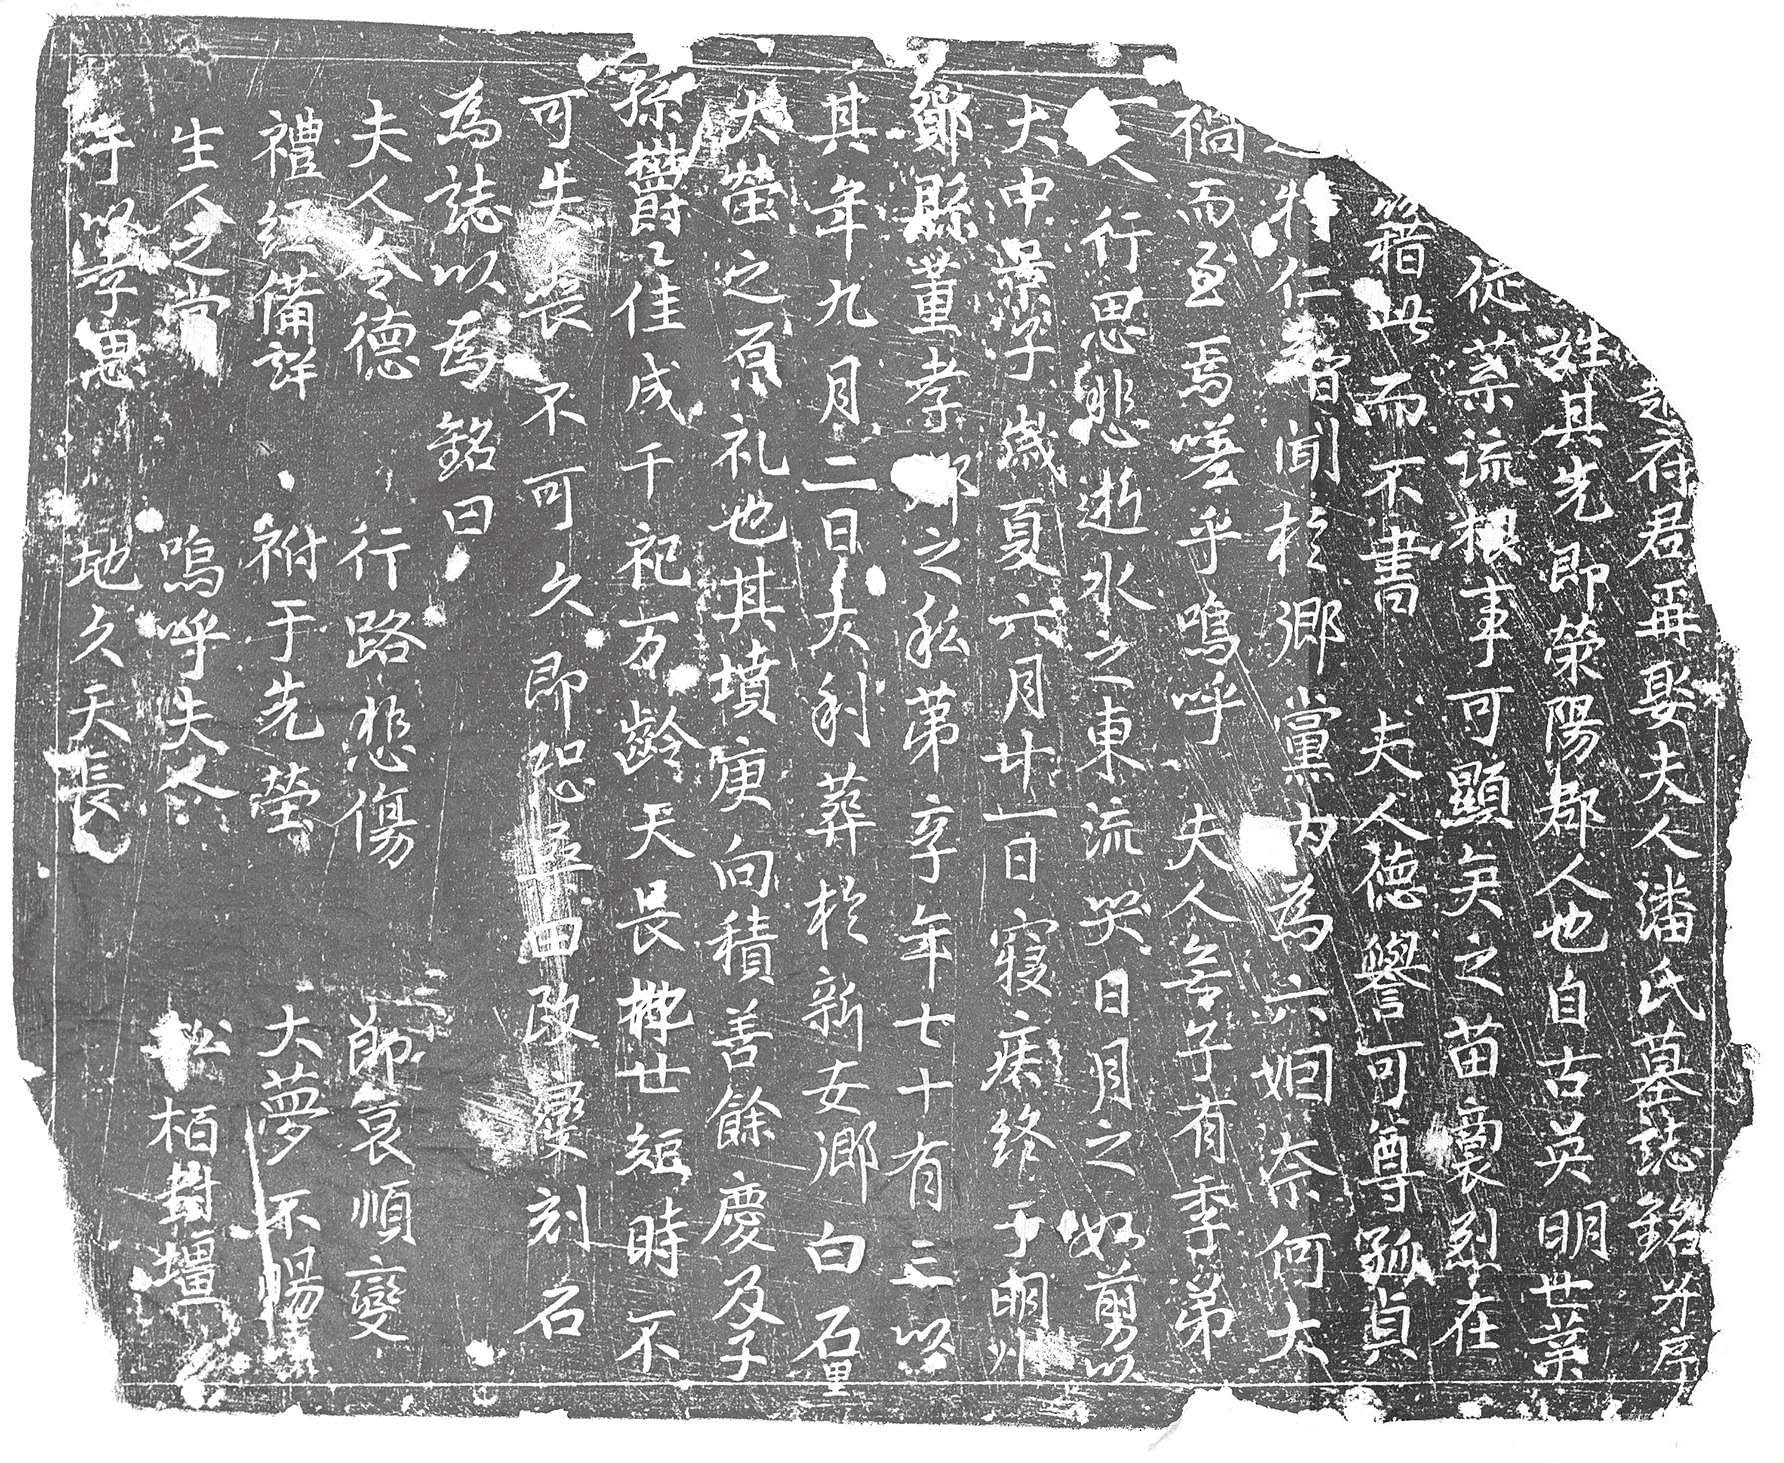 府君再娶夫人潘氏墓誌銘并序
姓其先即榮陽郡人也自古英明世葉
從葉流根事可顯矣之苗裔烈在
籍此而不書 夫人德譽可尊孤貞
特仁智聞於鄉黨內為六姻奈何大
禍而至焉嗟乎嗚呼 夫人無子有季弟
一人行思悲逝水之東流哭日月之如剪以
大中景子歲夏六月廿一日寢疾終于明州
鄮縣董孝鄉之私第享年七十有三以
其年九月二日大利葬於新安鄉白石里
大塋之原礼也其墳庚向積善餘慶及子
孫欝〻佳成千祀万齡天長地世短時不
可失喪不可久即恐桒田改變刻石
為誌以為銘曰
夫人令德 行路悲傷 節哀順變
禮紀備詳 祔于先塋 大夢不惕
生人之 嗚呼夫人 松栢對壇
孝思 地久天長